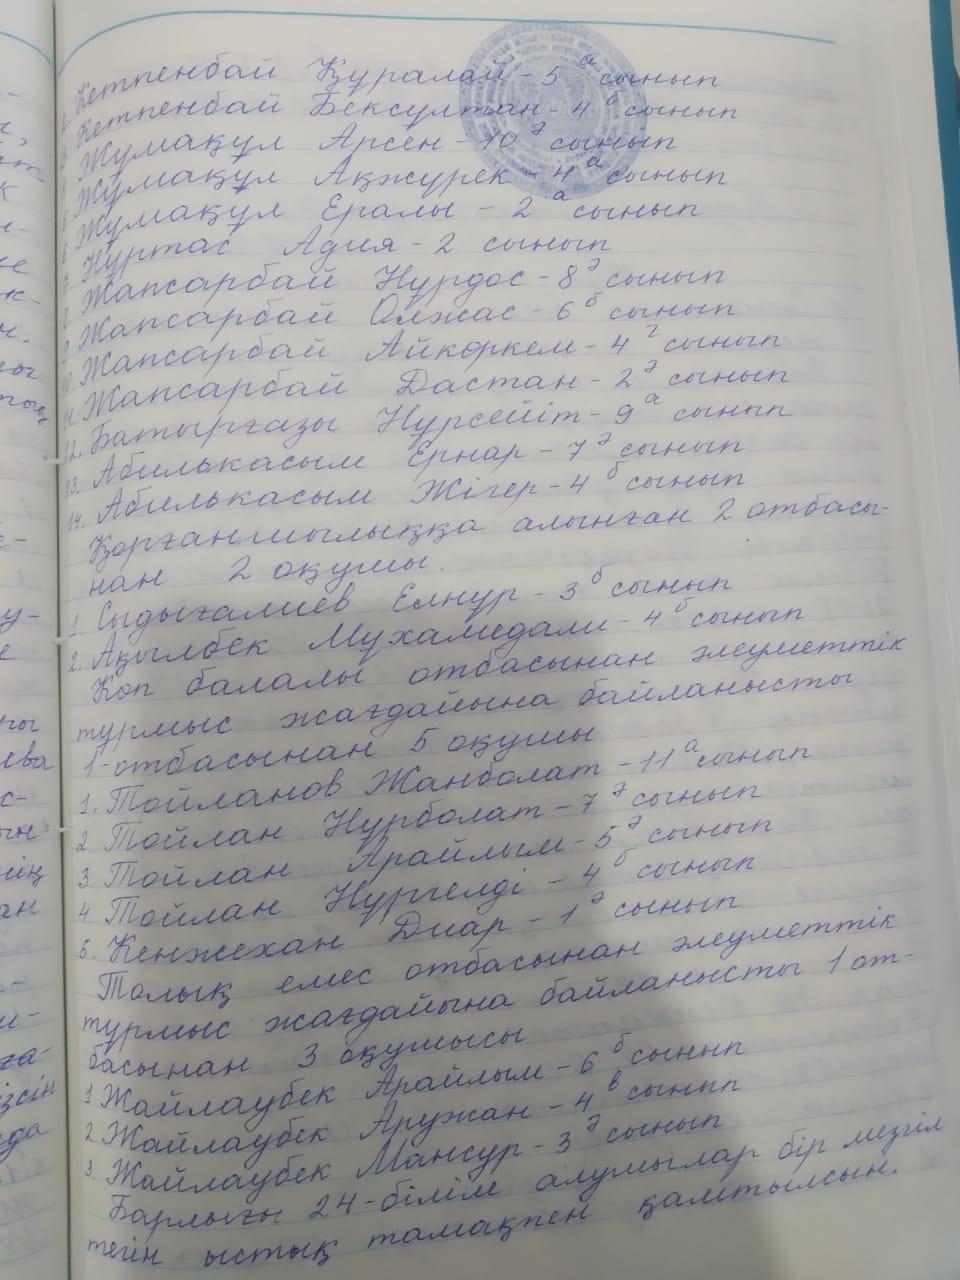 2. Кетпенбай Құралай - 5ᵃ сынып
3. Кетпенбай Бексултан - 4ᵇ сынып
4. Жұмақұл Арсен - 10ᵊ сынып
5. Жұмақұл Ақжүрек 4ᵃ сынып
6. Жұмақұл Ералы - 2ᵃ сынып
7. Нұртас Адия - 2 сынып
8. Жапсарбай Нұрдос - 8ᵊ сынып
9. Жапсарбай Олжас - 6ᵇ сынып
10. Жапсарбай Айкөркем - 4ᴦ сынып
11. Жапсарбай Дастан - 2ᵊ сынып
12. Батырғазы Нұрсейіт - 9ᵃ сынып
13. Абилькасым Ернар - 7ᵊ сынып
14. Абилькасым Жігер - 4ᵇ сынып
Қорғаншылыққа алынған 2 отбасы-
нан 2 оқушы.
1. Сыдығалиев Елнұр - 3ᵇ сынып
2. Ақылбек Мухамедали - 4ᵇ сынып
Көп балалы отбасынан әлеуметтік
тұрмыс жағдайына байланысты
1-отбасынан 5 оқушы
1. Тойланов Жанболат - 11ᵃ сынып
2 Тойлан Нұрболат - 7ᵊ сынып
3 Тойлан Арайлым - 5ᵊ сынып
4 Тойлан Нұргелді - 4ᵇ сынып
5. Кенжехан Диар - 1ᵊ сынып
Толық емес отбасынан әлеуметтік
тұрмыс жағдайына байланысты 1 от-
басынан 3 оқушысы
1 Жайлаубек Арайлым - 6ᵇ сынып
2. Жайлаубек Аружан - 4ᵛ сынып
3. Жайлаубек Мансур - 3ᵊ сынып
Барлығы 24-білім алушылар бір мезгіл
тегін ыстық тамақпен қамтылсын.